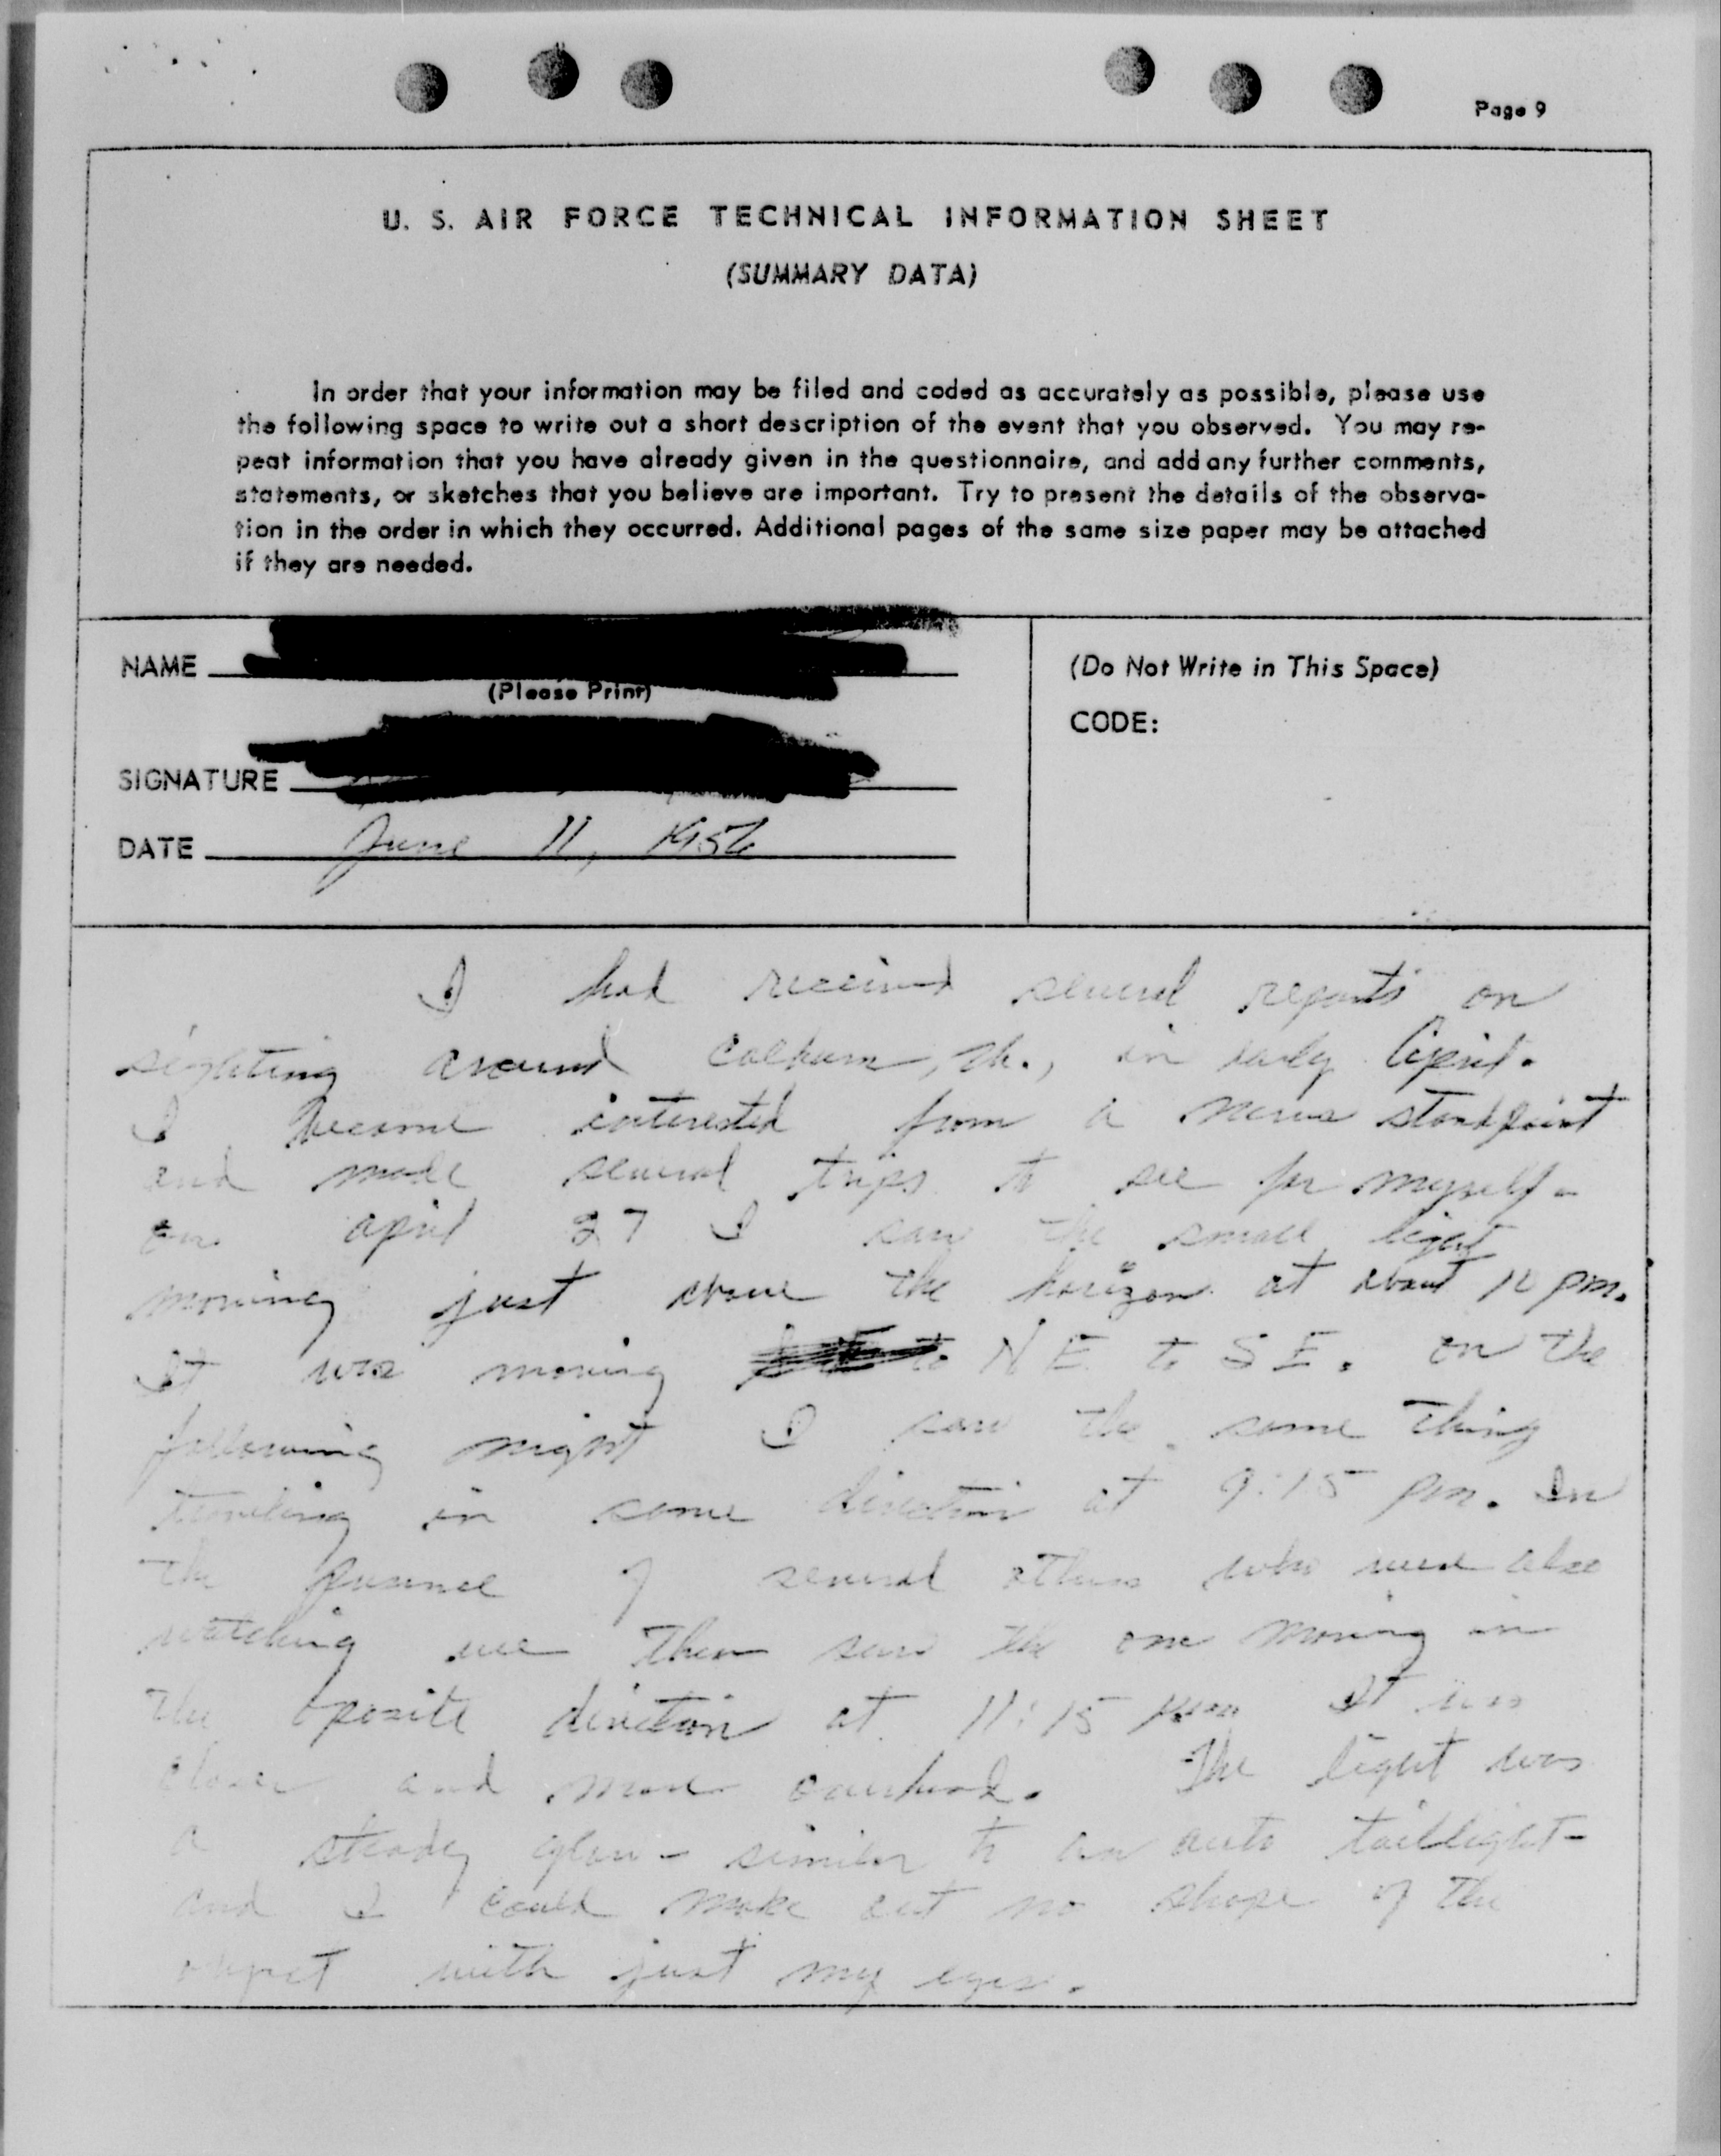 Page 9
U. S. AIR FORCE TECHNICAL INFORMATION SHEET
(SUMMARY DATA)
In order that your information may be filed and coded as accurately as possible, please use
the following space to write out a short description of the event that you observed. You may re-
peat information that you have already given in the questionnaire, and add any further comments,
statements, or sketches that you believe are important. Try to present the details of the observa-
tion in the order in which they occurred. Additional pages of the same size paper may be attached
if they are needed.
NAME
(Please Print)
SIGNATURE
DATE June 11, 1956
(Do Not Write in This Space)
CODE:
I had received several reports on
sighting around in early April.
I become interested from a news standpoint
and made several trips to see for myself-
on april 27 I saw the small light
moving just above the horizon at about pm.
It was moving to NE to SE. on the
following night I saw the same thing
traveling in same direction at 9:15 pm. In
the presence of several others who were also
watching we then saw the one moving in
the oposite direction at 11:15 It was
closer and more overhead. The light was
a steady glow - similar to an auto taillight-
and I could make out no shape of the
object with just my eyes.